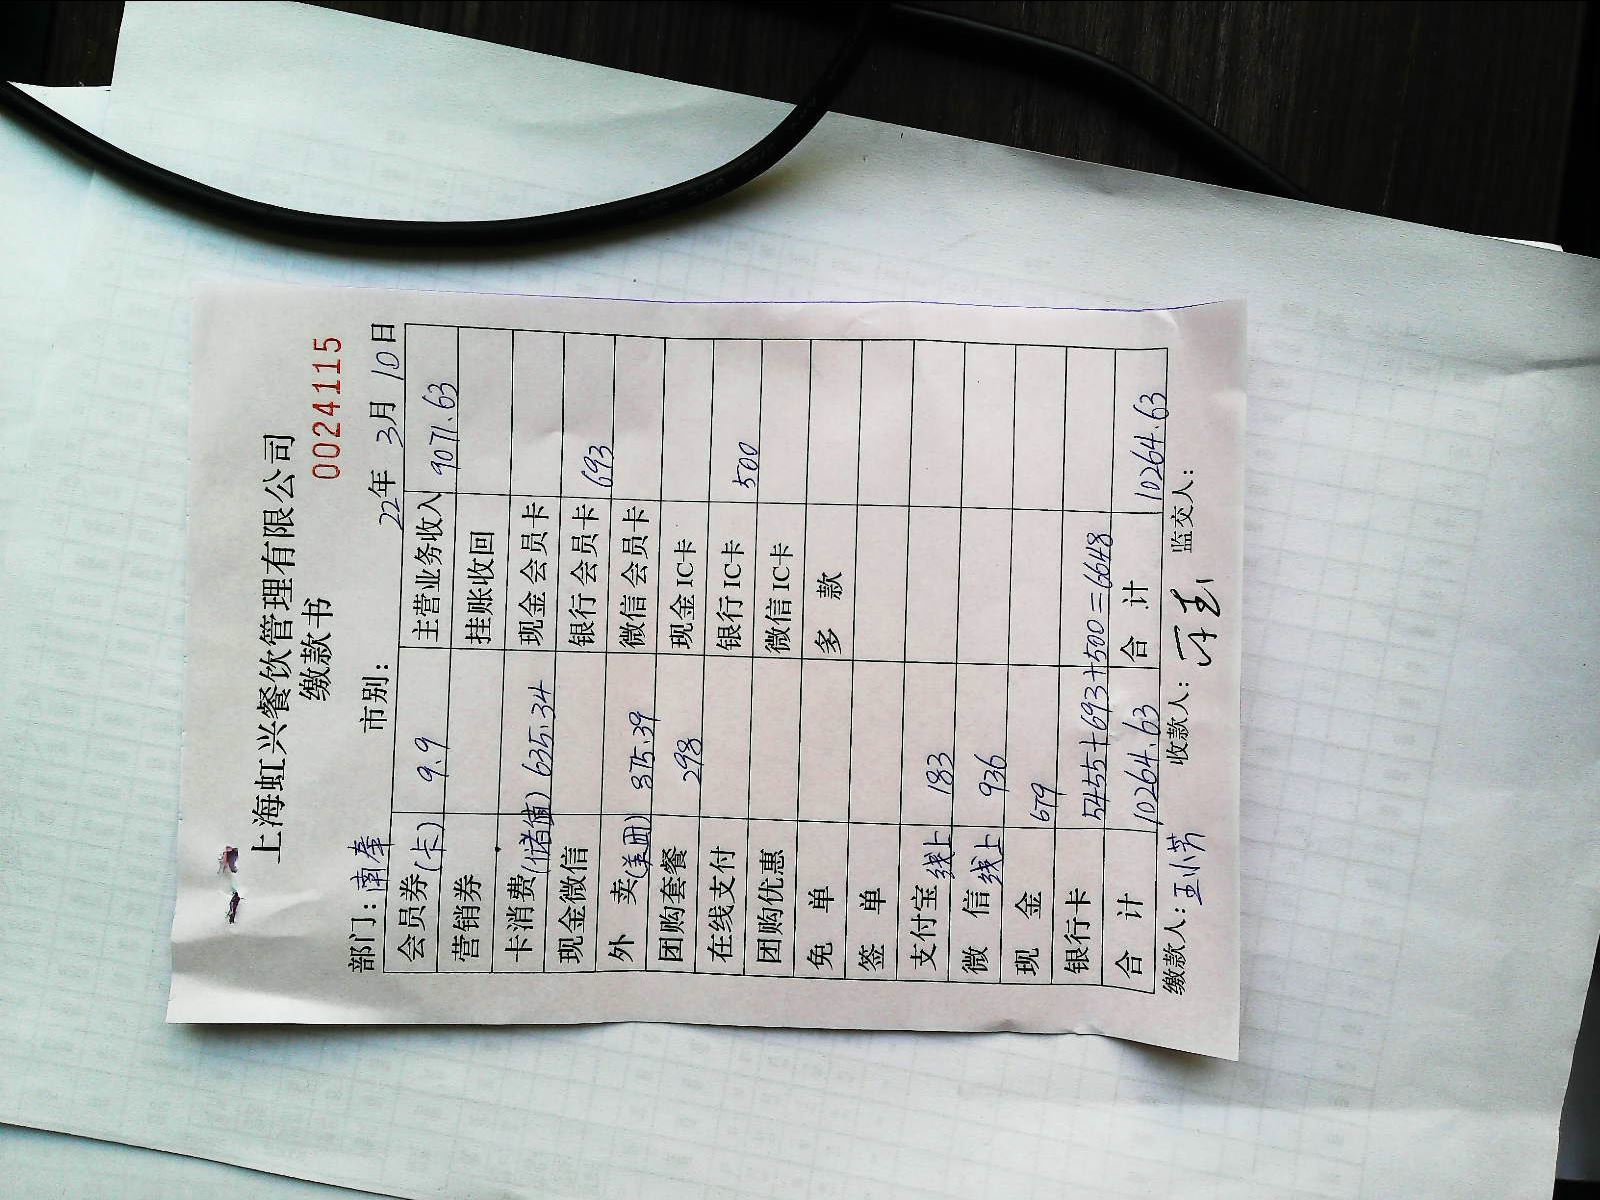 上海虹兴餐饮管理有限公司
缴款书
0024115
部门：南奉 市别： 22年 3月 10日
会员券(卡) 9.9 主营业务收入 9071.63
营销券 挂账收回
卡消费(储值) 635.34 现金会员卡
现金微信 银行会员卡 693
外 卖(美团) 875.39 微信会员卡
团购套餐 298 现金IC卡
在线支付 银行IC卡 500
团购优惠 微信IC卡
免 单 多 款
签 单
支付宝线上 183
微 信线上 936
现 金 679
银行卡 5455+693+500=6648
合 计 10264.63 合 计 10264.63
缴款人：王小芳 收款人： 监交人：